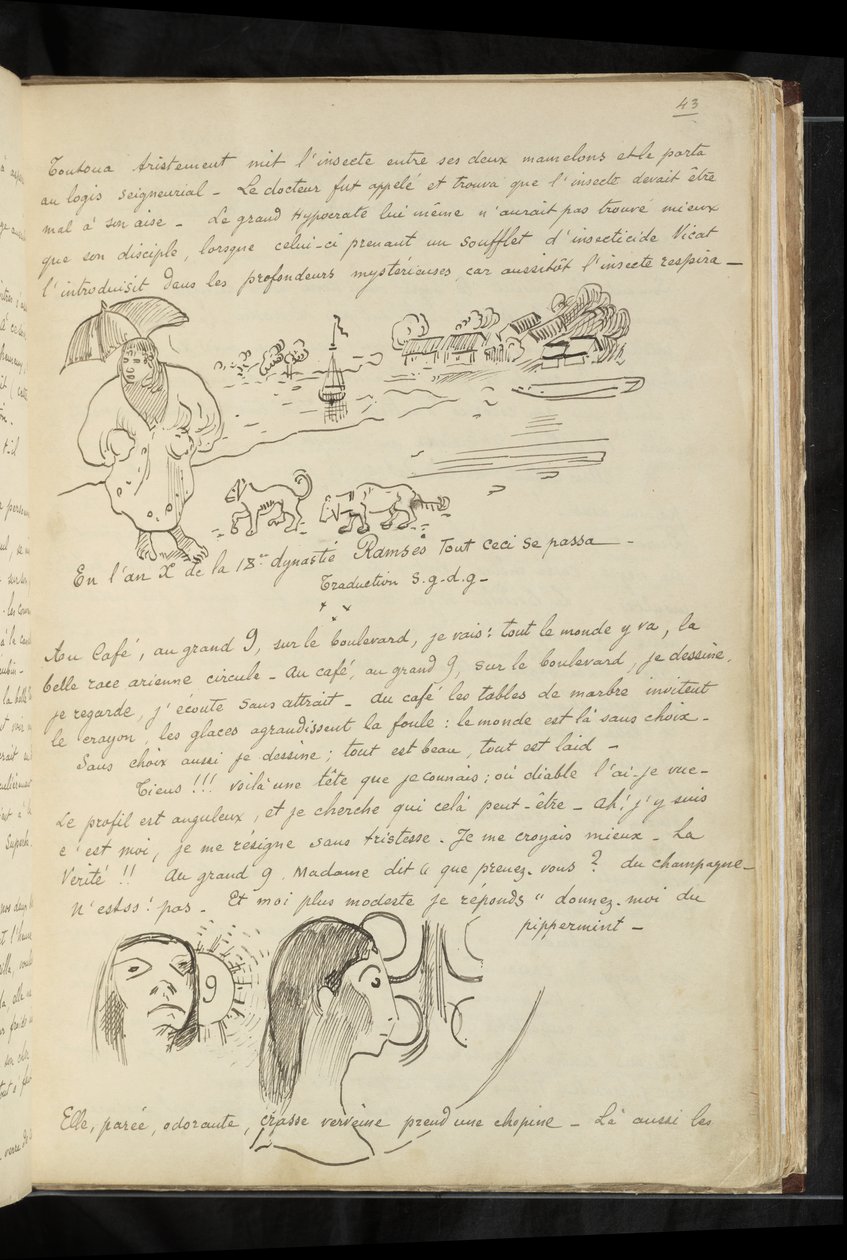 43
Toutoua tristement mit l'insecte entre ses deux mamelons et le porta
au logis seigneurial – Le docteur fut appelé et trouva que l'insecte devait être
mal à son aise – Le grand Hypocrate lui même n'aurait pas trouvé mieux
que son disciple, lorsque celui-ci prenant un soufflet d'insecticide Vicat
l'introduisit dans les profondeurs mystérieuses car aussitôt l'insecte respira –
En l'an X de la 18e dynastie Ramsès Tout ceci se passa –
Traduction s.g.d.g –
Au Café, au grand 9, sur le boulevard, je vais : tout le monde y va, la
belle race arienne circule – Au café, au grand 9, sur le boulevard, je dessine,
je regarde, j'écoute sans attrait – Au café les tables de marbre invitent
le crayon, les glaces agrandissent la foule : le monde est là sans choix –
Sans choix aussi je dessine ; tout est beau, tout est laid –
Tiens !!! voilà une tête que je connais ; où diable l'ai-je vue –
Le profil est anguleux, et je cherche qui celà peut-être – Ah! j'y suis
c'est moi, je me résigne sans tristesse. Je me croyais mieux – La
Vérité !! Au grand 9. Madame dit à que prenez-vous ? du champagne –
n'est pas – Et moi plus modeste je réponds " donnez-moi du
pippermint –
9
Elle, parée, odorante, crasse verveine prend une chopine – Là aussi les